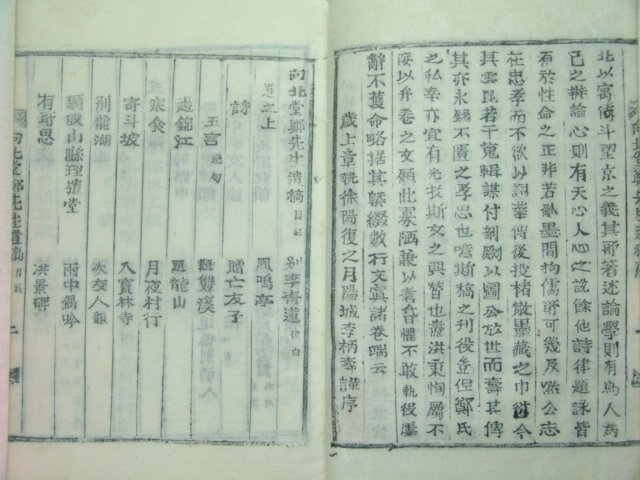 北以寓倚斗望京之義其所著述論學則有爲人爲
己之辨論心則有天心人心之說餘他詩律題詠皆
有於性命之正非若
在忠孝而不欲以詞華傳後授楮散墨藏之巾衍今
其雲昆若干蒐輯謀付剞劂以圖公放世而壽其傳
其亦永錫不匱之孝思也噫斯稿之刊役豈但鄭氏
之私幸亦宜有光於斯文之興替也耋洪秉恂屬不
佞以弁卷之文顧此寡陋兼以耄昏瞿不敢執役屢
辭不獲命略据其
歲上章執徐陽復之月陽城李柄壽謹序
向北堂鄭先生遺稿目錄
卷之上
詩
五言絶句
過錦江
寒食
寄斗坡
別龍湖
題峽山縣理遣堂
有所思
別李青蓮
鳳鳴亭
贈亡友子
題雙溪
題龍山
月夜村行
入寶林寺
次友人韻
雨中鍚吟
洪景碑
向北堂鄭先生遺稿 目錄 一